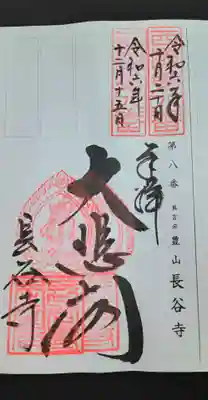 令和六年
十月二日
令和六年
十二月十五日
第八番 真言宗 豊山 長谷寺
奉拝
大悲閣
長谷寺